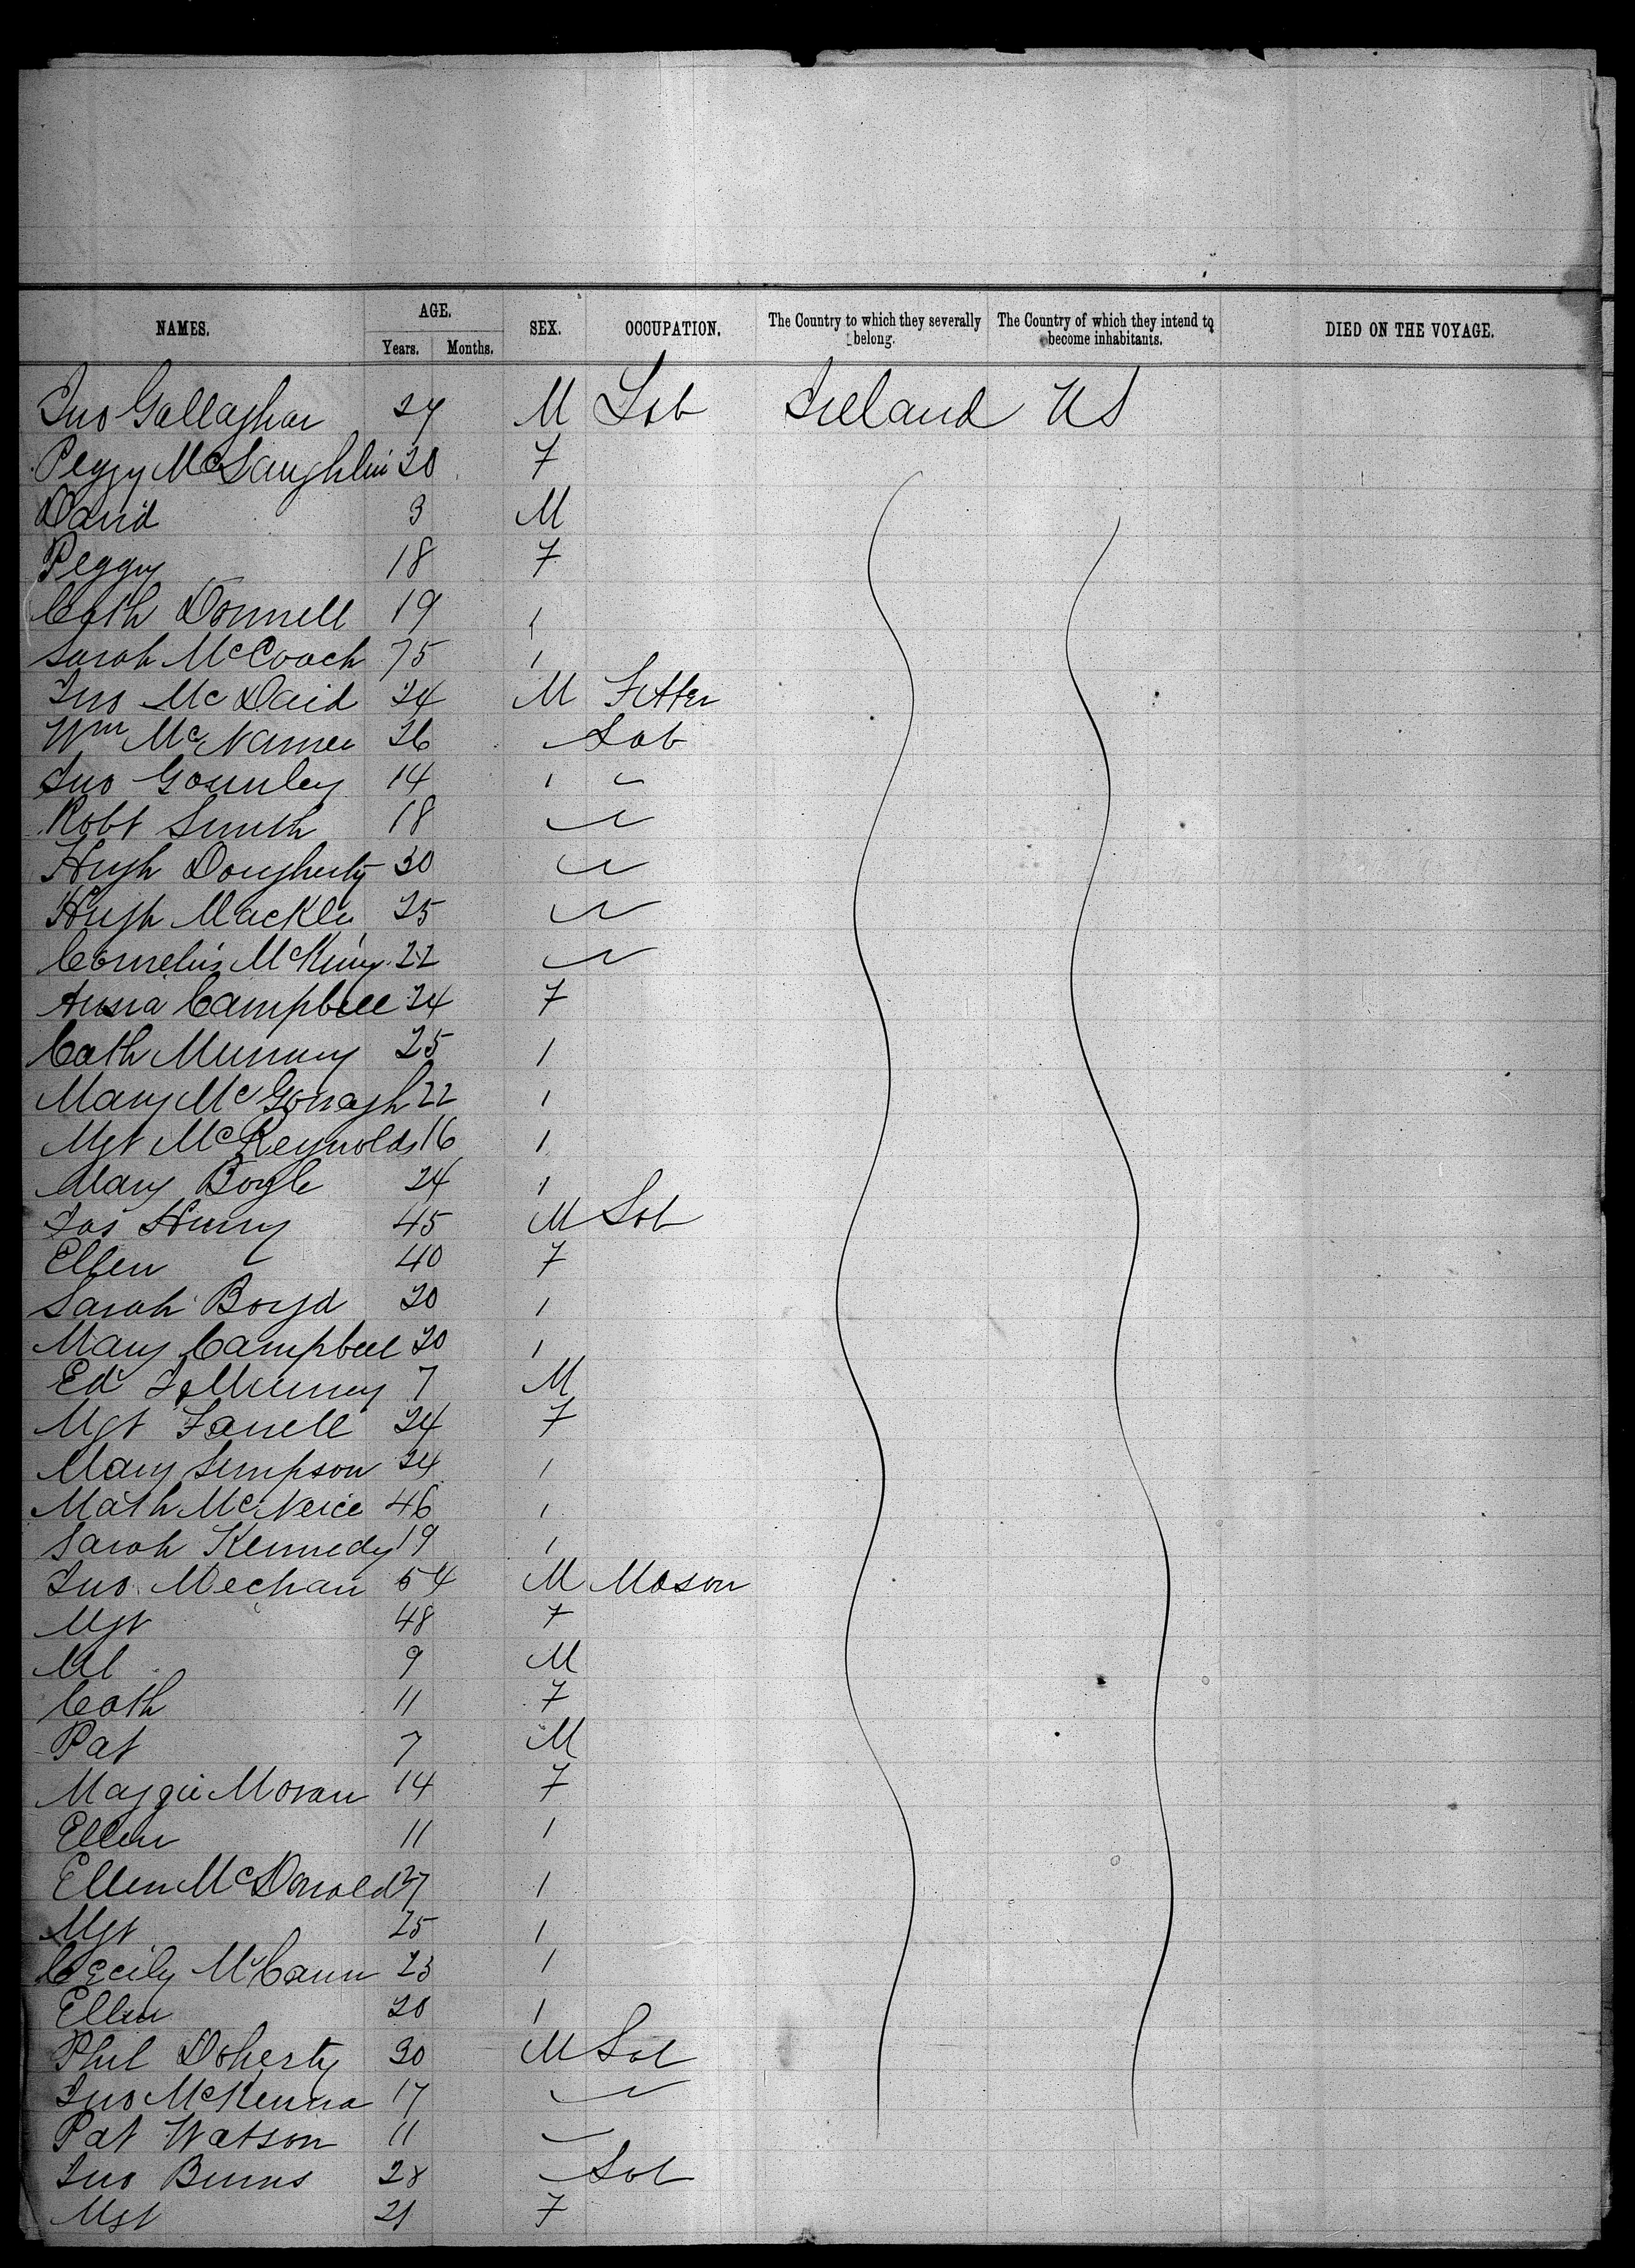 NAMES. AGE. SEX. OCCUPATION. The Country to which they severally belong. The Country of which they intend to become inhabitants. DIED ON THE VOYAGE.
Years. Months.
Jno Gallagher 27 M Lab Ireland US
Peggy McLaughlin 20 F
David 3 M
Peggy 18 F
Cath Donnell 19 1
Sarah McCoach 75 1
Jno McDaid 24 M Fitter
Wm McNamee 26 Lab
Jno Gormley 14 1 "
Robt Smith 18 "
Hugh Dougherty 30 "
Hugh Mackle 25 "
Cornelius 22 "
Anna Campbell 24 F
Cath Murray 25 1
Mary McGonagh 22 1
Mgt McReynolds 16 1
Mary Boyle 24 1
Jas Henry 45 M Lab
Ellen 40 F
Sarah Boyd 20 1
Mary Campbell 20 1
Ed 7 M
Mgt Farrell 24 F
Mary Simpson 24 1
Math McNeice 46 1
Sarah Kennedy 19 1
Jno Mechan 54 M Mason
Mgt 48 F
Ml 9 M
Cath 11 F
Pat 7 M
Maggie Moran 14 F
Ellen 11 1
Ellen McDonald 27 1
Mgt 25 1
Cecily McCann 23 1
Ellen 20 1
Phil Doherty 30 M Lab
Jno McKenna 17 "
Pat Watson 11
Jno Burns 28 Lab
Mgt 21 F